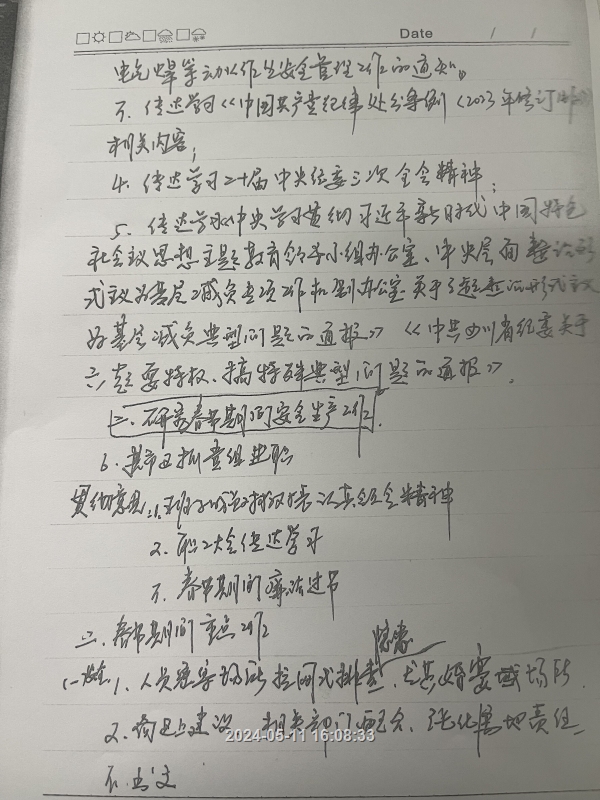 Date / /
电气焊等动火作业安全管理工作的通知。
3. 传达学习《中国共产党纪律处分条例（2023年修订版）》
相关内容；
4. 传达学习二十届中央纪委三次全会精神；
5. 传达学习《中央学习贯彻习近平新时代中国特色
社会主义思想主题教育领导小组办公室、中央层面整治形
式主义为基层减负专项工作机制办公室关于3起整治形式主义
为基层减负典型问题的通报》《中共四川省纪委关于
六起要特权、搞特殊典型问题的通报》。
二、研究春节期间安全生产工作.
6.
贯彻意见：1. 认真 全会精神
2. 职工大会传达学习
3. 春节期间廉洁过节
二、春节期间重点工作
隐患
(一)安全 1. 人员密集场所拉网式排查, 尤其婚宴 场所
2. 建设 相关部门配合、强化属地责任
3.
2024-05-11 16:08:33